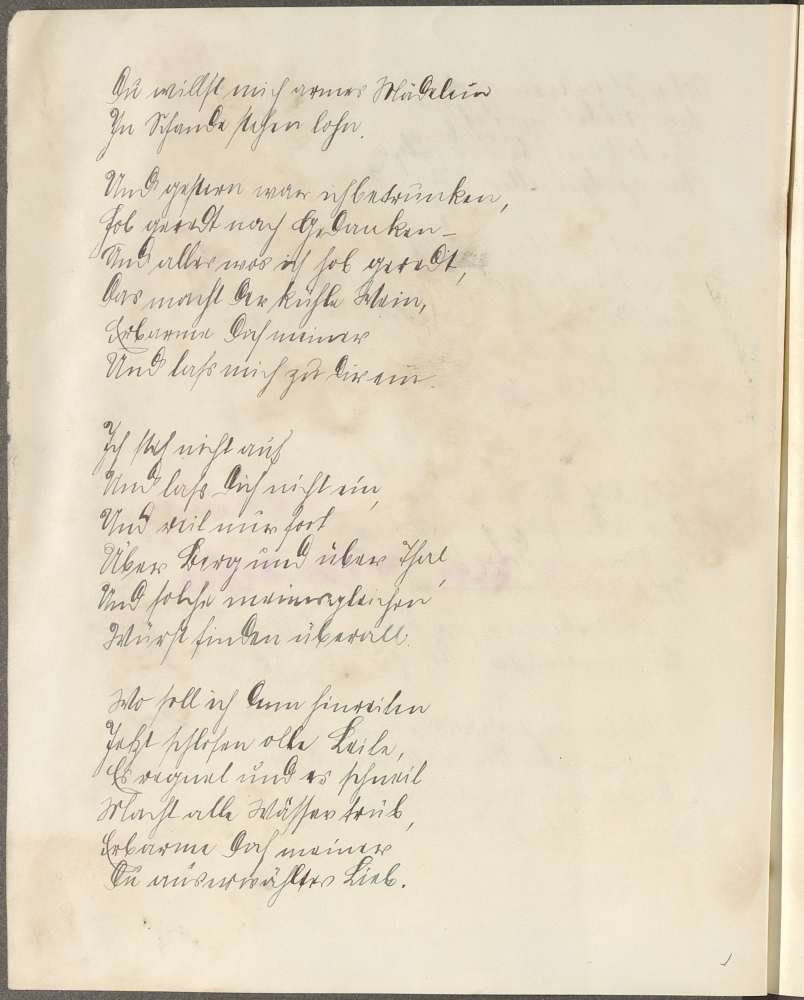 Du willst mich armes Mädelein
In Schande stehen lohn.
Und gestern war ich betrunken,
Hob geredt noch Gedanken –
Und alles wos ich hob geredt,
Das macht der kühle Wein,
Erbarme Doch meiner
Und lass mich zu Dir ein.
Ich steh nicht auf
Und lass Dich nicht ein,
Und reit nur fort
Über Berg und über Thal,
Und solche meinesgleichen
Würst finden überall.
Wo soll ich denn hinreiten
Jetzt schlofen olle Leite,
Es regnet und es schneit
Macht alle Wässer trüb,
Erbarme Doch meiner
Du auserwähltes Lieb.